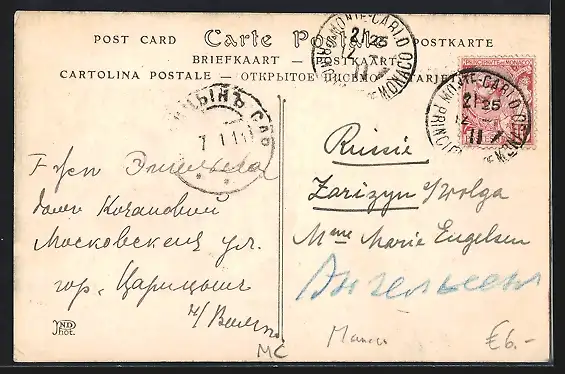 POST CARD Carte Postale POSTKARTE
BRIEFKAART — POSTKAART
CARTOLINA POSTALE — ОТКРЫТОЕ ПИСЬМО — TARJE
MONTE-CARLO
21 25
PRINCIPTE DE MONACO
PRINCIPAUTÉ DE MONACO
MONTE-CARLO
21 25
12 - 1
11
ЦЫНЪ САР
7 1 11
Russie
Zarizyn s/Wolga
Mme Marie Engelsen
Г-жи Энгельсен
домъ Кочановой
Московская ул.
гор. Царицынъ
н/Волгѣ
Ангельсенъ
ND
Phot.
MC
Monaco
€6.-